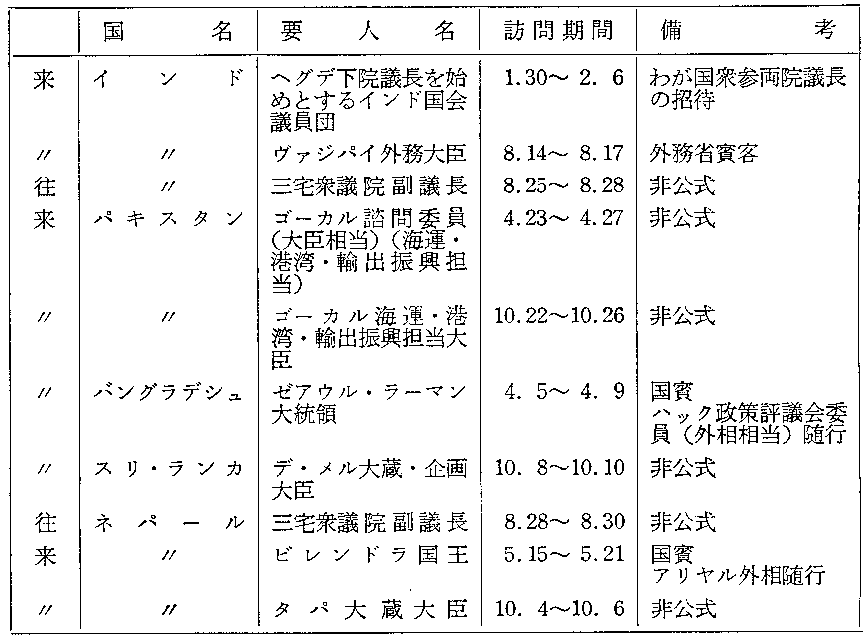 国名 要人名 訪問期間 備考
来 インド ヘグデ下院議長を始 1.30〜 2. 6 わが国衆参両院議長
めとするインド国会 の招待
議員団
〃 〃 ヴァジパイ外務大臣 8.14〜 8.17 外務省賓客
往 〃 三宅衆議院副議長 8.25〜 8.28 非公式
来 パキスタン ゴーカル諮問委員 4.23〜 4.27 非公式
(大臣相当)(海運・
港湾・輸出振興担
当)
〃 〃 ゴーカル海運・港 10.22〜10.26 非公式
湾・輸出振興担当大
臣
〃 バングラデシュ ゼアウル・ラーマン 4. 5〜 4. 9 国賓
大統領 ハック政策評議会委
員(外相相当)随行
〃 スリ・ランカ デ・メル大蔵・企画 10. 8〜10.10 非公式
大臣
往 ネパール 三宅衆議院副議長 8.28〜 8.30 非公式
来 〃 ビレンドラ国王 5.15〜 5.21 国賓
アリヤル外相随行
〃 〃 タパ大蔵大臣 10. 4〜10. 6 非公式